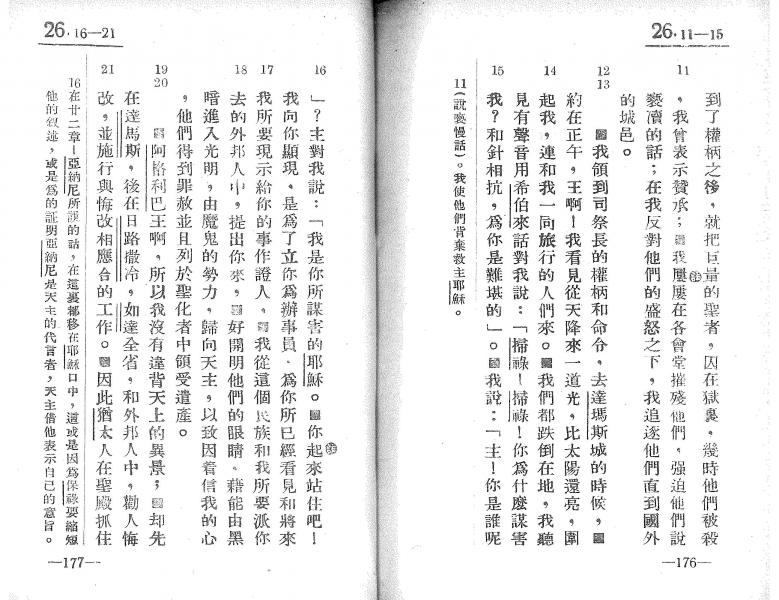 26. 11—15
11
到了權柄之後，就把巨量的聖者，囚在獄裏，幾時他們被殺
，我曾表示贊承；我屢屢在各會堂摧殘他們，强迫他們說
褻瀆的話；在我反對他們的盛怒之下，我追逐他們直到國外
的城邑。
12
13
我領到司祭長的權柄和命令，去達瑪斯城的時候，
約在正午，王啊！我看見從天降來一道光，比太陽還亮，圍
14
起我，連和我一同旅行的人們來。我們都跌倒在地，我聽
見有聲音用希伯來話對我說：「掃祿！掃祿！你爲什麼謀害
15
我？和針相抗，爲你是難堪的」。我說：「主！你是誰呢
11（說褻慢話）。我使他們背棄救主耶穌。
—176—
26. 16—21
16
」？主對我說：「我是你所謀害的耶穌。你起來站住吧！
我向你顯現，是爲了立你爲辦事員，爲你所已經看見和將來
17
我所要現示給你的事作證人。我從這個民族和我所要派你
18
去的外邦人中，提出你來，好開明他們的眼睛，藉能由黑
暗進入光明，由魔鬼的勢力，歸向天主，以致因着信我的心
，他們得到罪赦並且列於聖化者中領受遺產。
19
20
阿格利巴王啊，所以我沒有違背天上的異景；却先
在達馬斯，後在日路撒冷，如達全省，和外邦人中，勸人悔
21
改，並施行與悔改相應合的工作。因此猶太人在聖殿抓住
16在廿二章！亞納尼所說的話，在這裏挪移在耶穌口中，這或是因爲保祿要縮短
他的叙述，或是爲的証明亞納尼是天主的代言者，天主借他表示自己的意旨。
—177—